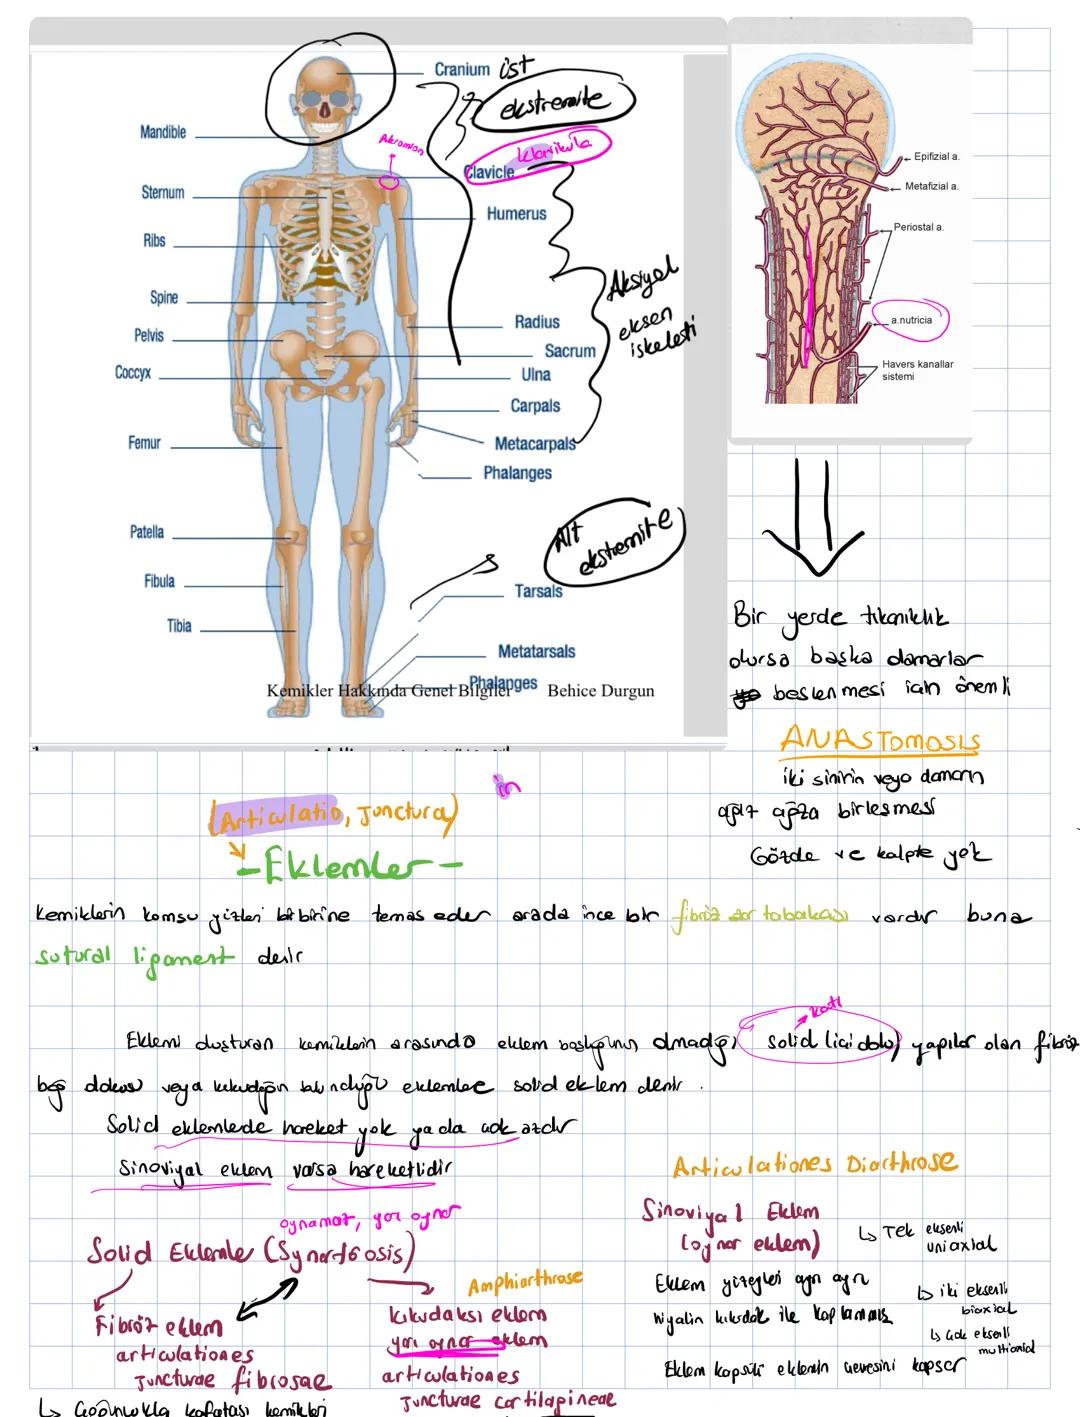 Cranium
üst
ekstremite
Mandible
Akromion
klavikula
Clavicle
Sternum
Humerus
Ribs
Aksiyal
eksen
iskeleti
Spine
Radius
Pelvis
Sacrum
Coccyx
Ulna
Carpals
Femur
Metacarpals
Phalanges
Alt
ekstremite
Patella
Fibula
Tarsals
Tibia
Metatarsals
Phalanges
Kemikler Hakkında Genel Bilgiler Behice Durgun
Epifizial a.
Metafizial a.
Periostal a.
a.nutricia
Havers kanallar
sistemi
Bir yerde tıkanıklık
olursa başka damarlar
beslenmesi için önemli
ANASTOMOSIS
iki sinirin veya damarın
ağız ağıza birleşmesi
Gözde ve kalpte yok
in
(Articulatio, Junctura)
-Eklemler-
Kemiklerin komşu yüzleri birbirine temas eder arada ince bir fibröz zar tabakası vardır buna
sutural ligament denir
katı
Eklemi oluşturan kemiklerin arasında eklem boşluğunun olmadığı solid (içi dolu) yapılar olan fibröz
bağ dokusu veya kıkırdağın bulunduğu eklemlere solid eklem denir.
Solid eklemlerde hareket yok ya da çok azdır
Sinoviyal eklem varsa hareketlidir
oynamaz, yarı oynar
Solid Eklemler (Synarthrosis)
Fibröz eklem
articulationes
Juncturae fibrosae
Çoğunlukla kafatası kemikleri
Amphiarthrose
Kıkırdaksı eklem
yarı oynar eklem
articulationes
Juncturae cartilagineae
Articulationes Diarthrose
Sinoviyal Eklem
(oynar eklem)
Tek eksenli
uniaxial
Eklem yüzeyleri ayrı ayrı
hiyalin kıkırdak ile kaplanmış
iki eksenli
biaxial
çok eksenli
multiaxial
Eklem kapsülü eklemin çevresini kapsar